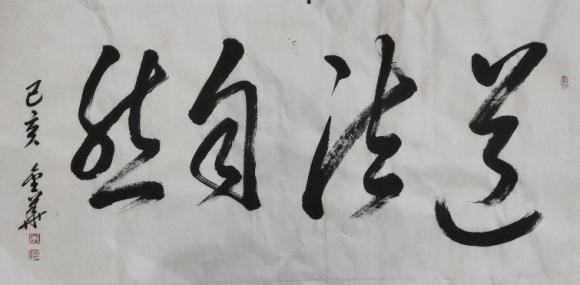 道法自然
己亥 金華